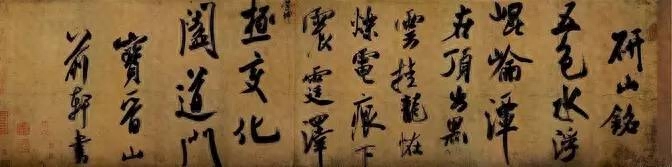 研山銘
五色水浮
崐崘潭
在頂出黑
雲挂龍怪
爍電痕下
震霆澤
極变化
闔道門
寶晉山
前軒書